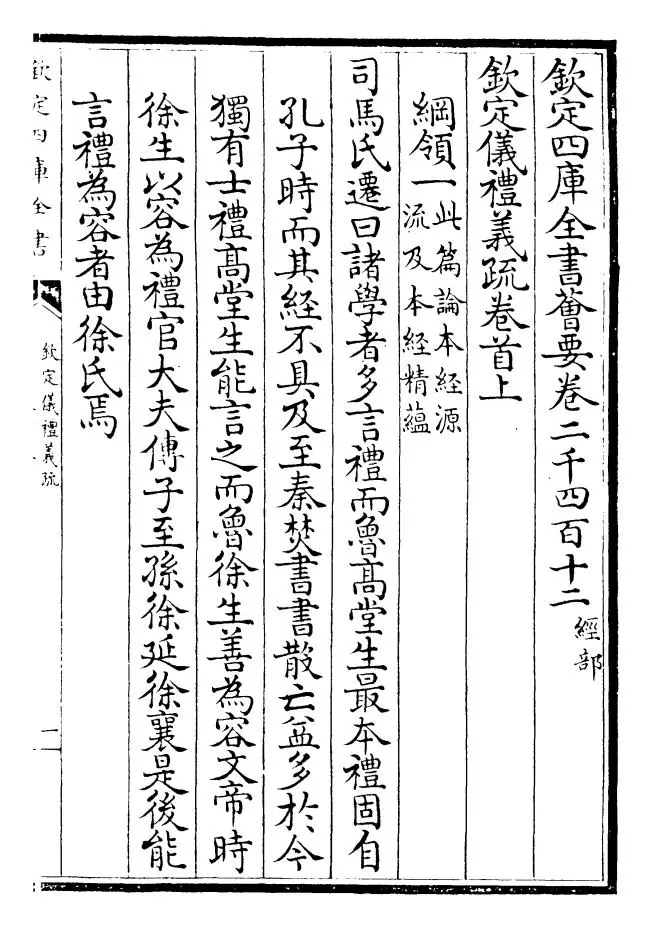 欽定四庫全書薈要卷二千四百十二 經部
欽定儀禮義疏卷首上
綱領一 此篇論本經源
流及本經精蘊
司馬氏遷曰諸學者多言禮而魯髙堂生最本禮固自
孔子時而其經不具及至秦焚書書散亡益多於今
獨有士禮髙堂生能言之而魯徐生善為容文帝時
徐生以容為禮官大夫傳子至孫徐延徐襄是後能
言禮為容者由徐氏焉
欽定四庫全書
欽定儀禮義疏
一